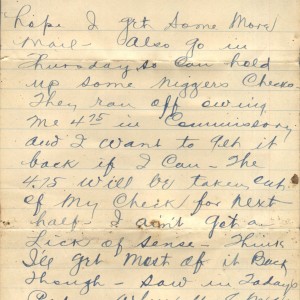 hope I get some more
mail - Also go in
Thursday so can hold
up some niggers checks.
They ran off owing
me 4.75 in Commissary
and I want to get it
back if I can - The
4.75 will be taken out
of my check for next
half - I ain't got a
Lick of sense - Think
I'll get most of it back
though - saw in Today's